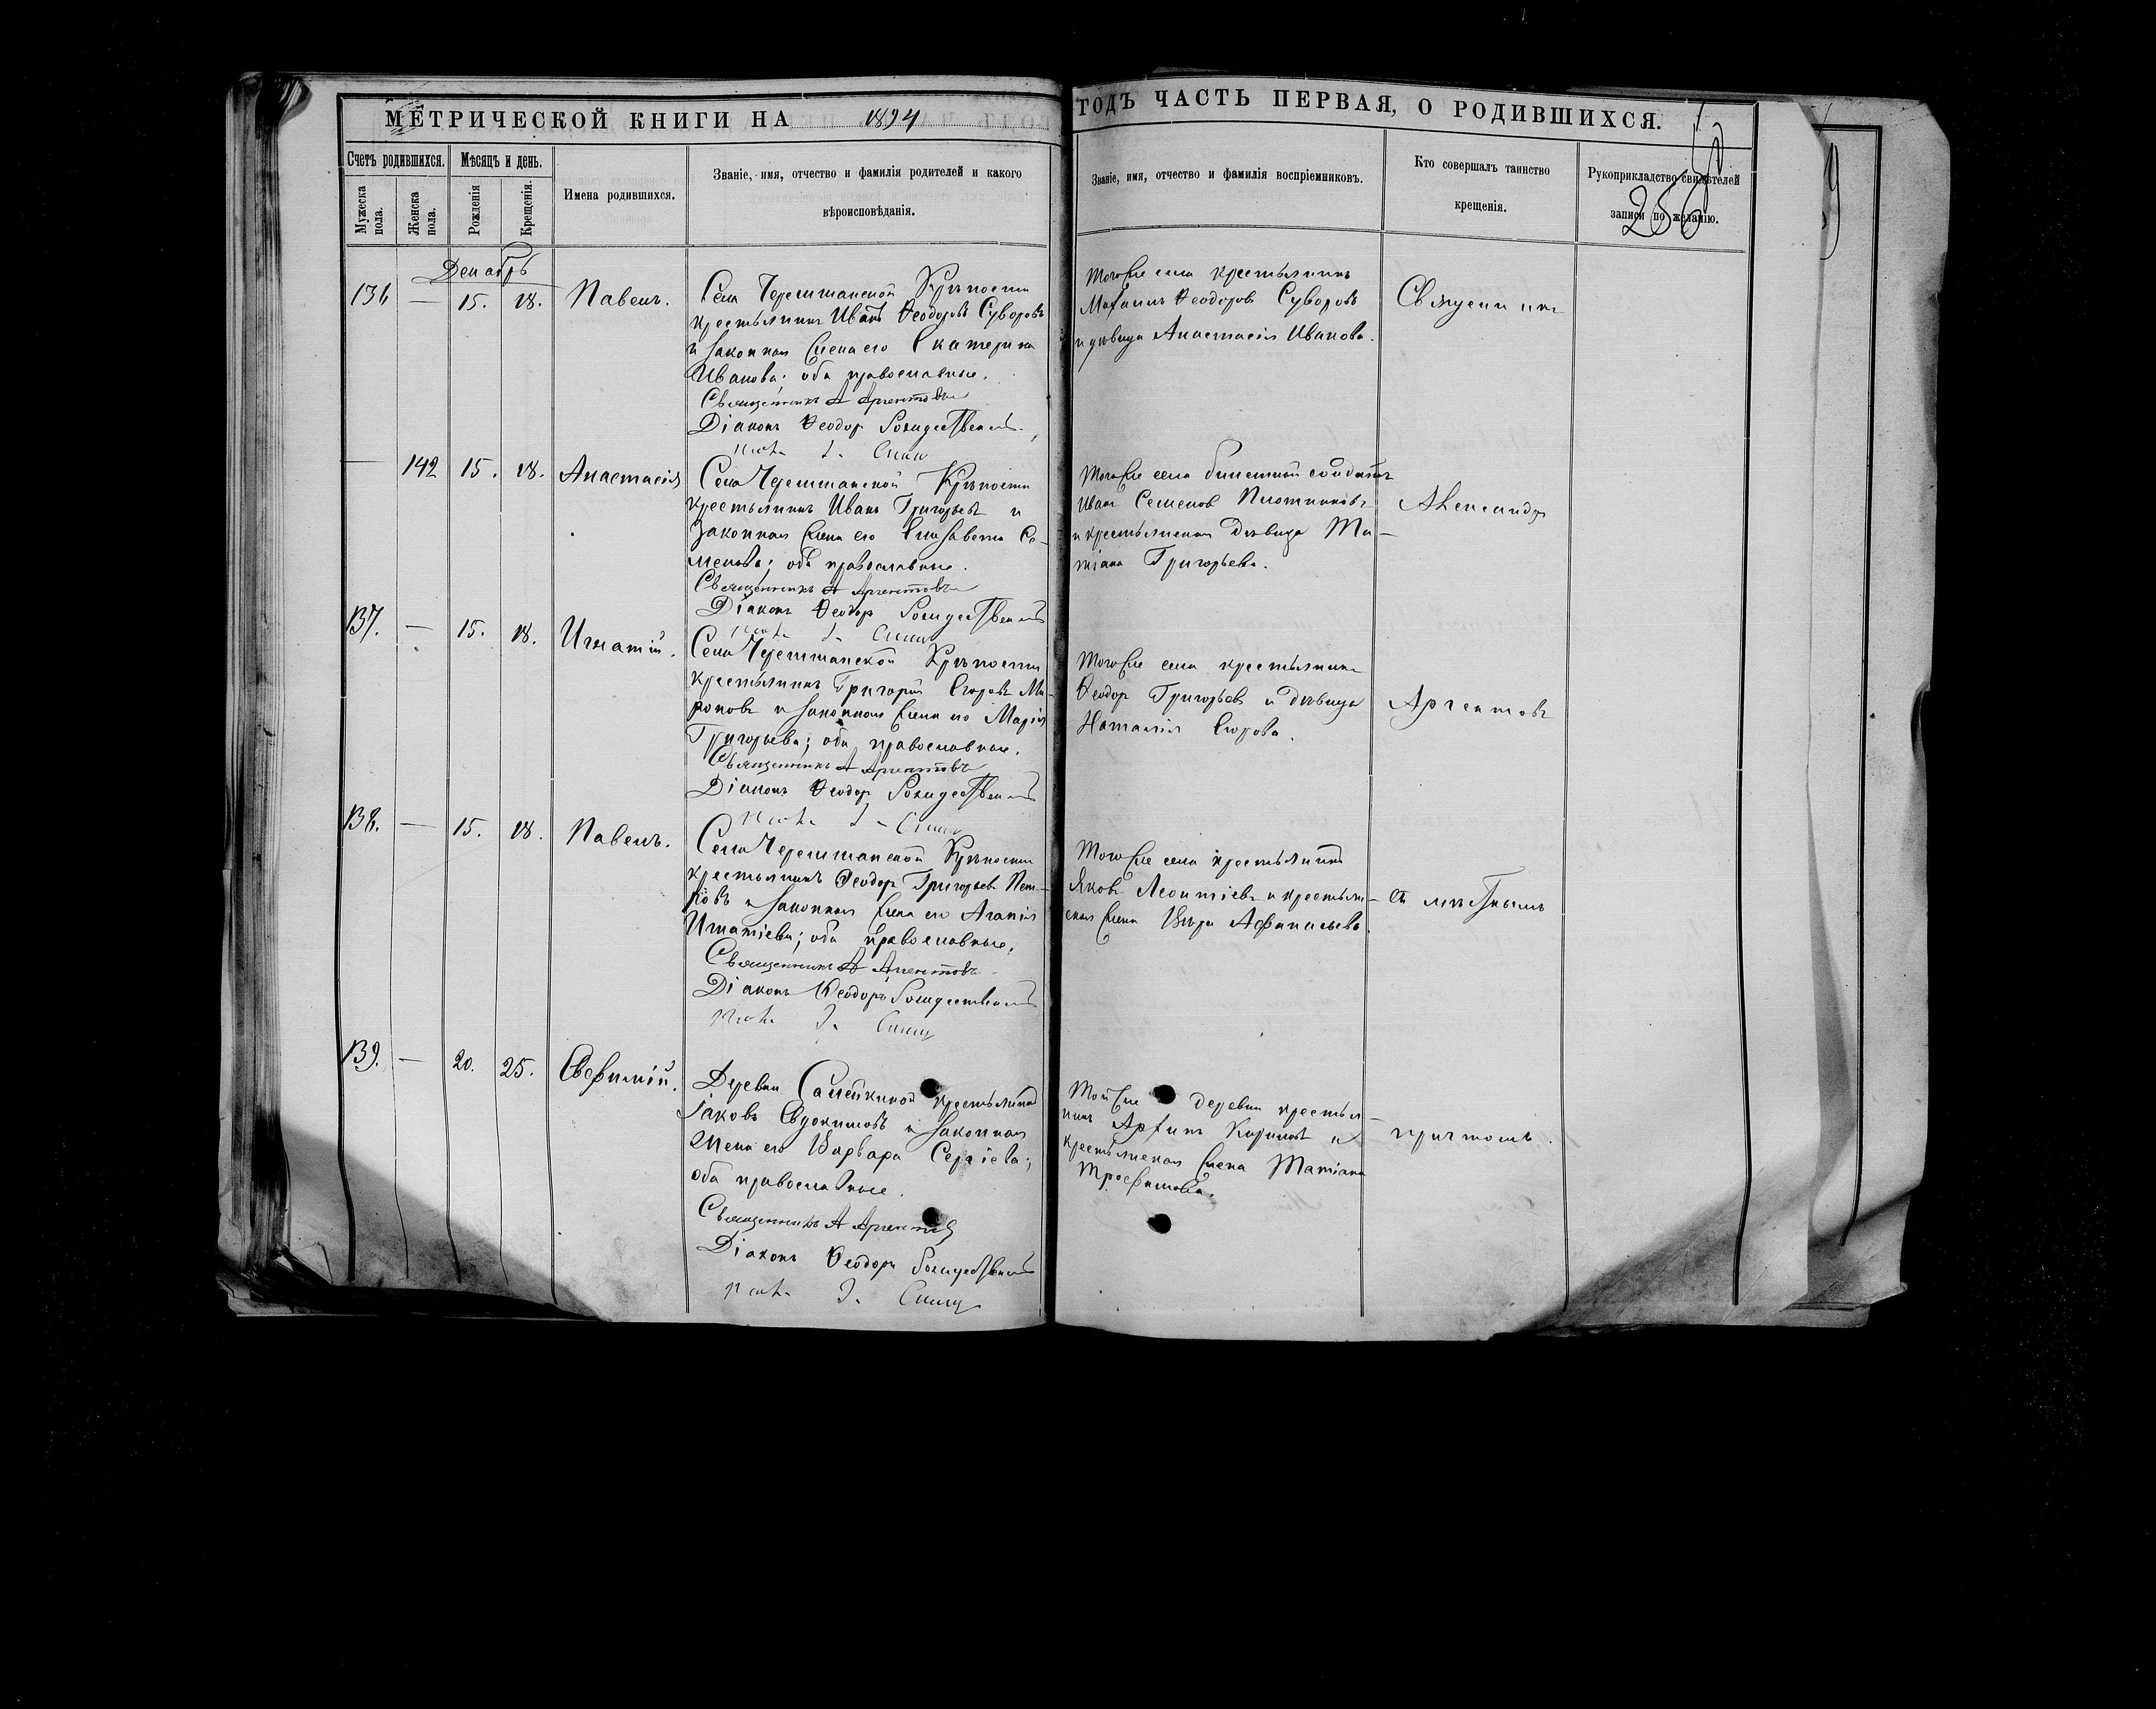 МЕТРИЧЕСКОЙ КНИГИ НА 1894
ГОДЪ ЧАСТЬ ПЕРВАЯ, О РОДИВШИХСЯ.
256
Счетъ родившихся.
Мужеска пола.
Женска пола.
Мѣсяцъ и день.
Рожденія
Крещенія.
Имена родившихся.
Званіе, имя, отчество и фамилія родителей и какого
вѣроисповѣданія.
Званіе, имя, отчество и фамилія воспріемниковъ.
Кто совершалъ таинство
крещенія.
Рукоприкладство свидѣтелей
записи по желанію.
Декабрь
136 — 15. 18. Павелъ.
Села Черемшанской Крѣпости
крестьянинъ Иванъ Ѳеодоровъ Суворовъ
и законная жена его Екатерина
Иванова; оба православные.
Священникъ А Аргентовъ
Діаконъ Ѳеодоръ Рождественскій
Тогоже села крестьянинъ
Ѳеодоровъ Суворовъ
и дѣвица Анастасія Иванова.
Священникъ
— 142 15. 18. Анастасія
Села Черемшанской Крѣпости
крестьянинъ Иванъ Григорьевъ и
законная жена его Елисавета Се-
менова; оба православные.
Священникъ А Аргентовъ
Діаконъ Ѳеодоръ Рождественскій
Тогоже села билетный солдатъ
Иванъ Семеновъ Плотниковъ
и крестьянская дѣвица Та-
тіана Григорьева.
Александръ
137. — 15. 18. Игнатій.
Села Черемшанской Крѣпости
крестьянинъ Григорій Егоровъ Ми-
роновъ и законная жена его Марія
Григорьева; оба православные.
Священникъ А Аргентовъ
Діаконъ Ѳеодоръ Рождественскій
Тогоже села крестьянинъ
Ѳеодоръ Григорьевъ и дѣвица
Наталія Егорова.
Аргентовъ
138. — 15. 18. Павелъ.
Села Черемшанской Крѣпости
крестьянинъ Ѳеодоръ Григорьевъ Пет-
ровъ и законная жена его Агапія
Игнатіева; оба православные.
Священникъ А Аргентовъ
Діаконъ Ѳеодоръ Рождественскій
Тогоже села крестьянинъ
Яковъ Леонтіевъ и крестьян-
ская жена Вѣра Афанасьева.
съ мѣстнымъ
139. — 20. 25. Евфимій.
Деревни Самейкиной крестьянинъ
Іаковъ Евдокимовъ и законная
жена его Варвара Сергіева;
оба православные.
Священникъ А Аргентовъ
Діаконъ Ѳеодоръ Рождественскій
Тойже деревни крестья-
нинъ Кириловъ и
крестьянская жена Татіана
Трофимова.
причтомъ.